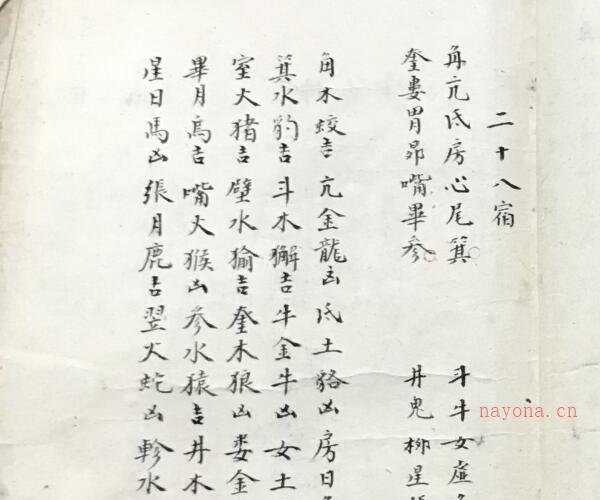 二十八宿
角亢氐房心尾箕 斗牛女虚
奎婁胃昴嘴畢参 井鬼柳星
角木蛟吉亢金龍凶氐土貉凶房日
箕水豹吉斗木獬吉牛金牛凶女土
室火猪吉壁水㺄吉奎木狼凶娄金
畢月烏吉嘴火猴凶参水猿吉井木
星日馬凶張月鹿吉翌火蛇凶軫水
nayona.cn